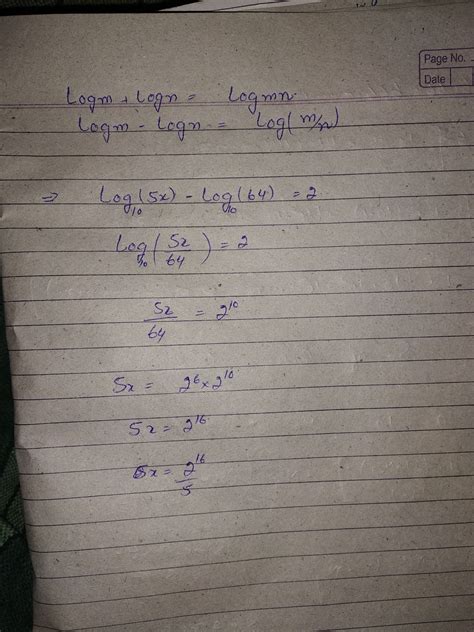 Page No.
Date
Logm + Logn = Logmn.
Logm - Logn = Log(m/n)
⇒ Log₁₀(5x) - Log₁₀(64) = 2
Log₁₀(5x/64) = 2
5x/64 = 2¹⁰
5x = 2⁶ × 2¹⁰
5x = 2¹⁶
x = 2¹⁶/5